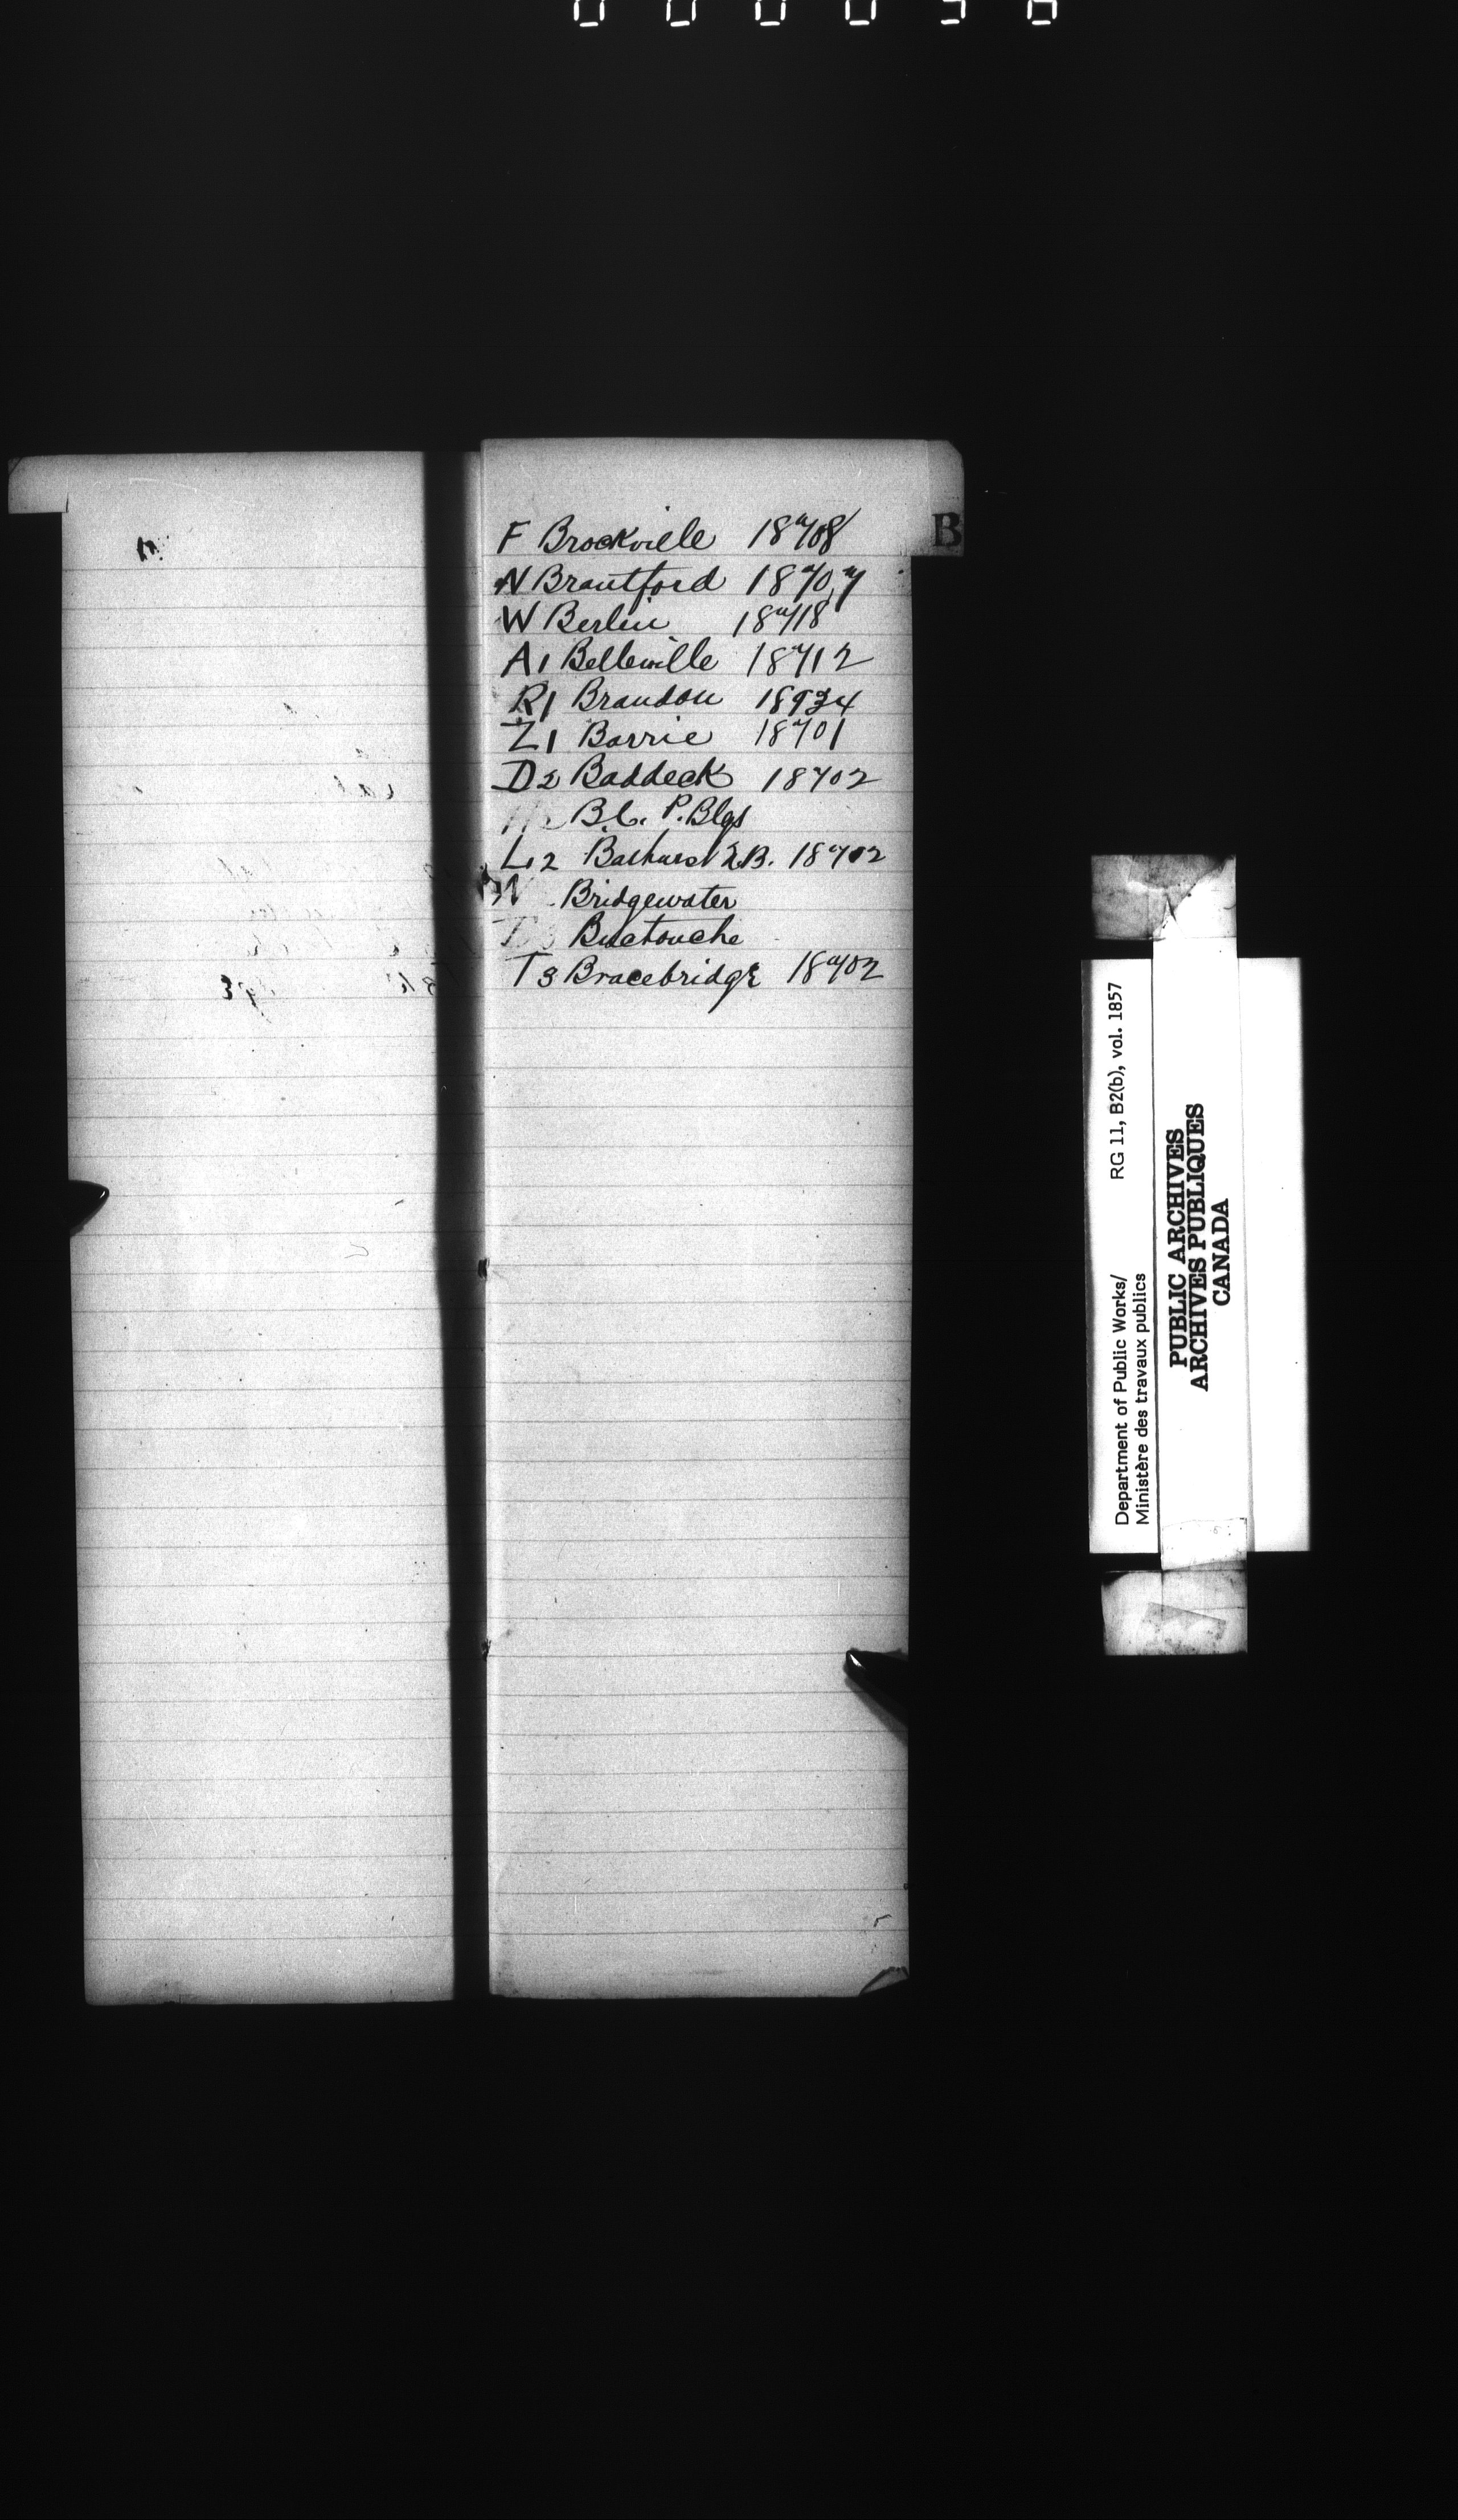 B
F Brockville 18708
N Brantford 18707
W Berlin 18718
A1 Belleville 18712
R1 Brandon 18934
Z1 Barrie 18701
D2 Baddeck 18702
B.C. P. Blgs
L2 Bathurst N.B. 18702
Bridgewater
Buctouche
T3 Bracebridge 18702
Department of Public Works/ RG 11, B2(b), vol. 1857
Ministère des travaux publics
PUBLIC ARCHIVES
ARCHIVES PUBLIQUES
CANADA